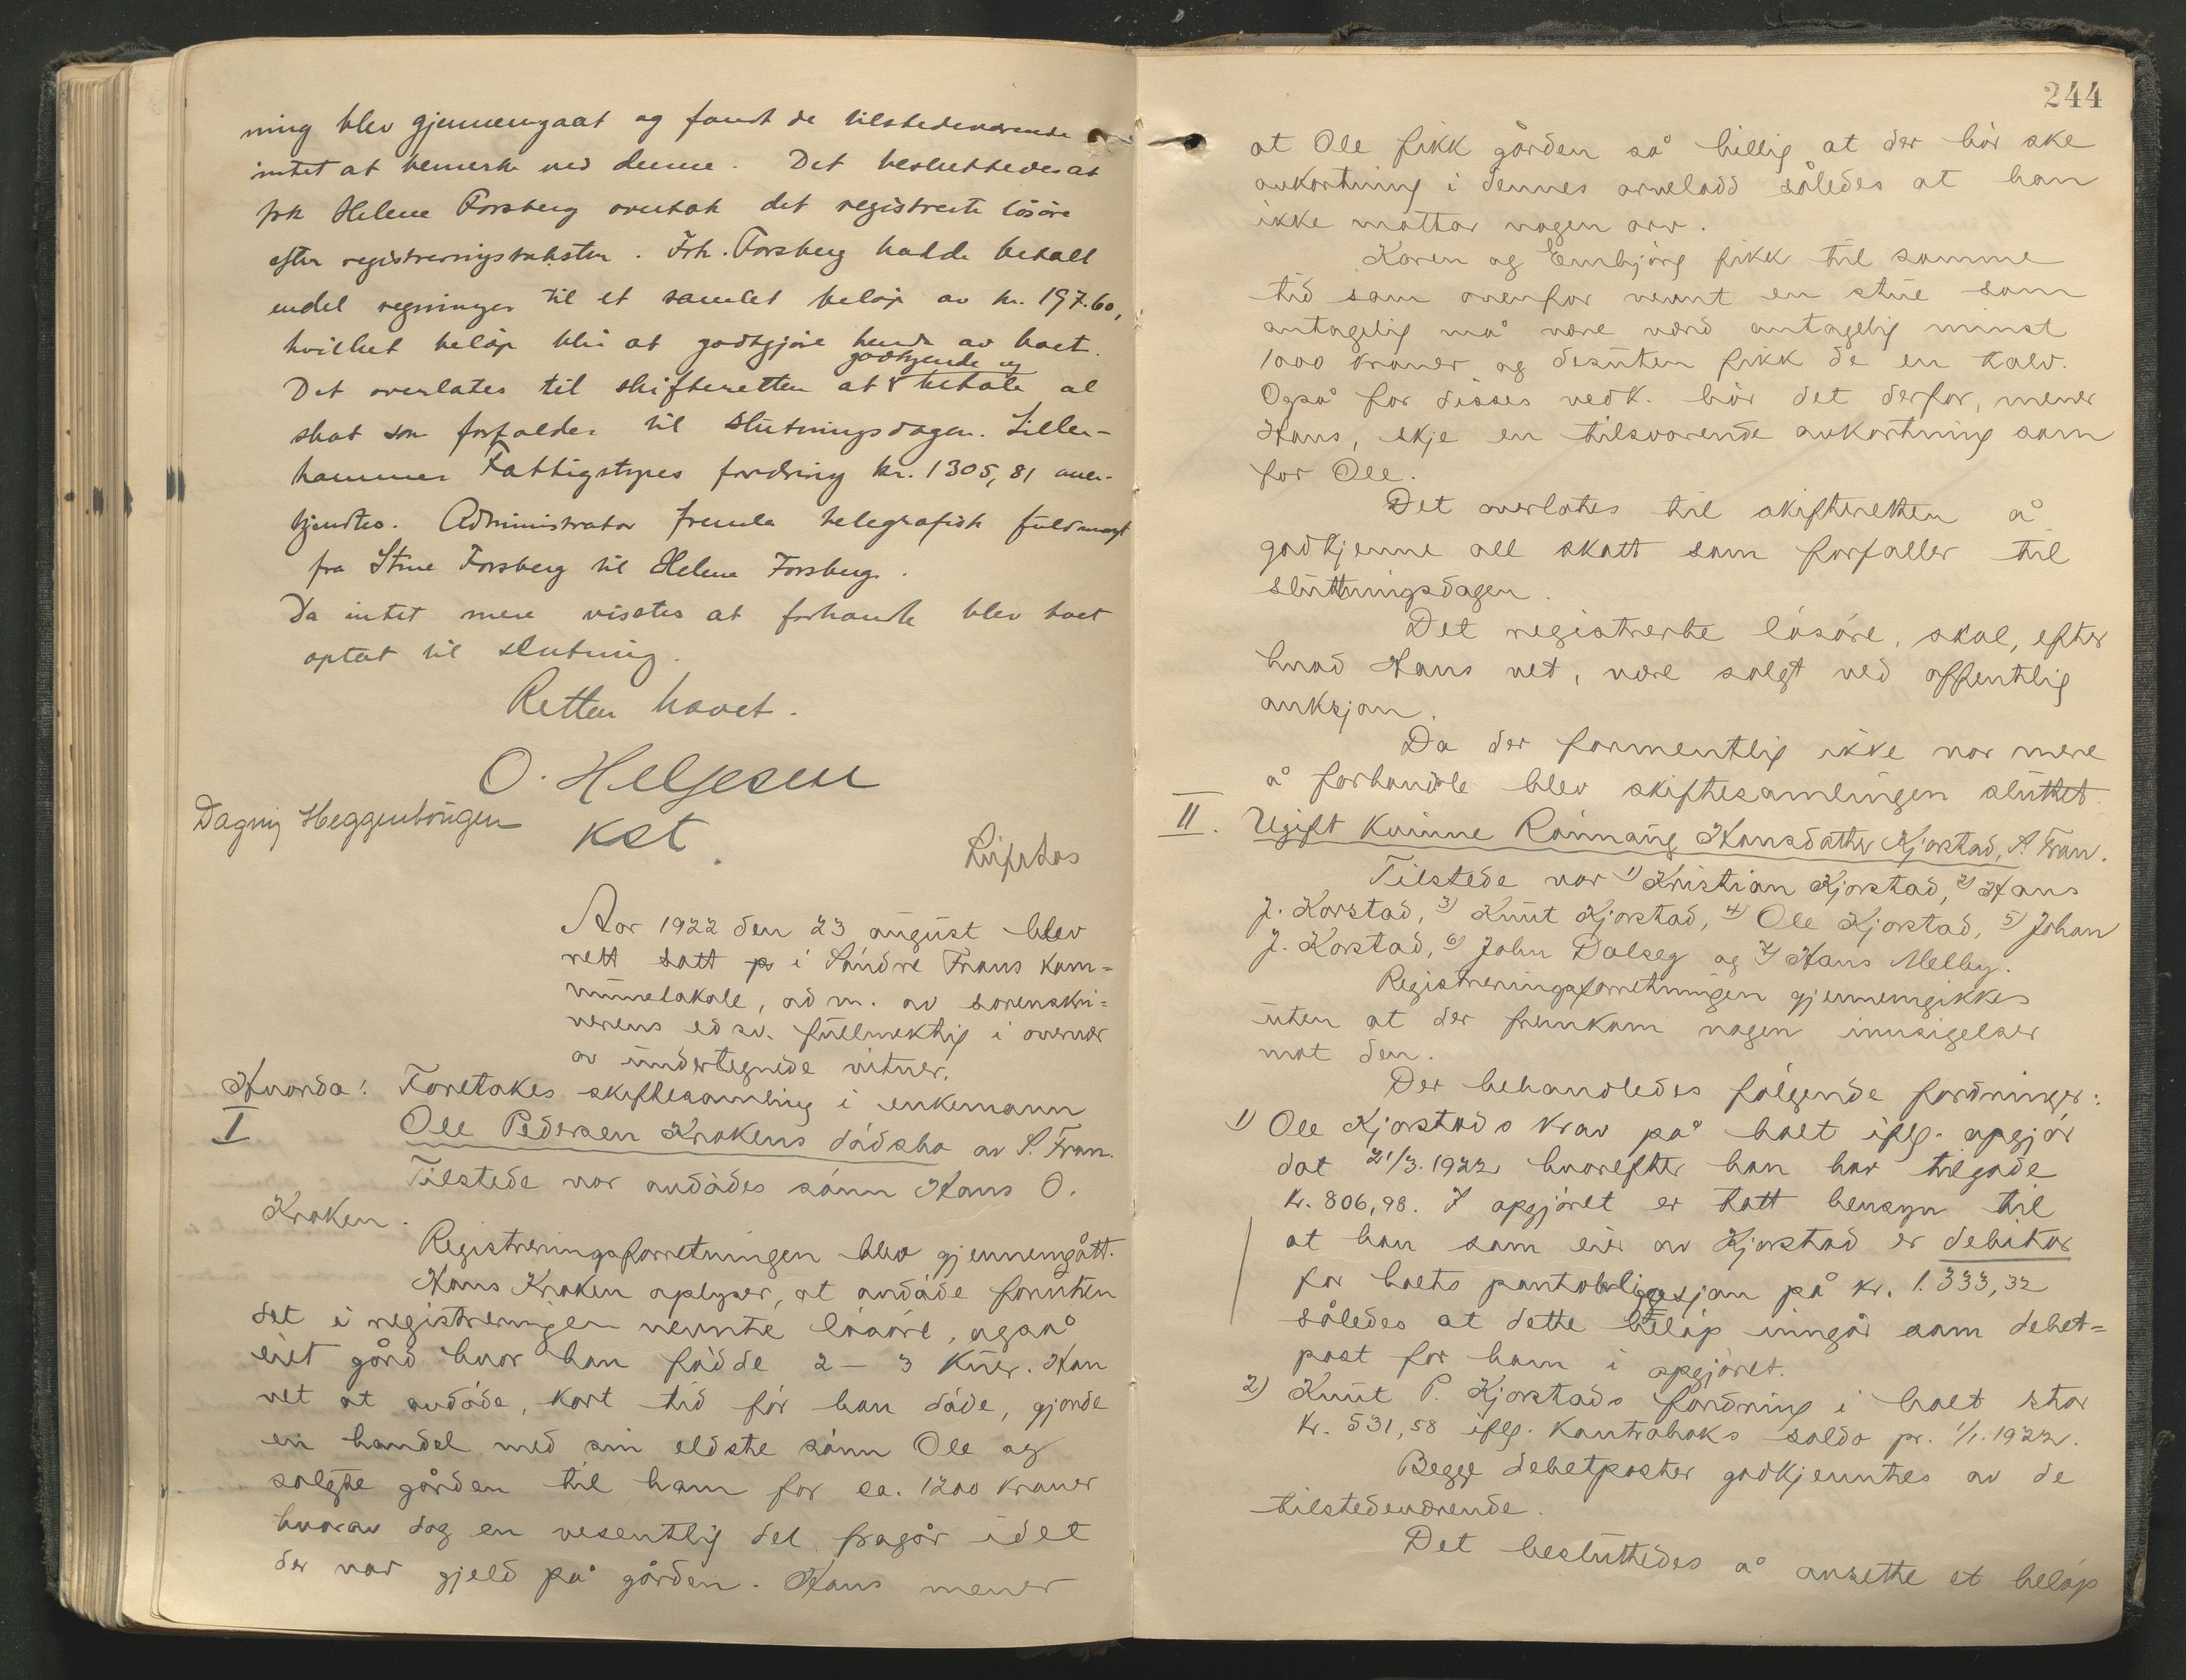 ning blev gjennemgaat og fandt de tilstedeværende
intet at bemerke ved denne. Det besluttedes at
frk Helene Forsberg overtok det registrerte løsøre
efter registreringstaksten. Frk. Forsberg hadde betalt
endel regninger til et samlet beløp av kr. 197.60,
hvilket beløp blir at godtgjøre hende av boet.
godkjende og
Det overlates til skifteretten at betale al
skat som forfalder til slutningsdagen. Lille-
hammer Fattigstyres fordring kr. 1305,81 aner-
kjendtes. Administrator fremla telegrafisk fuldmagt
fra Stine Forsberg til Helene Forsberg.
Da intet mere visstes at forhandle blev boet
optat til slutning.
Retten hævet.
O. Helgesen
Dagny Heggenhougen
kst.
Aar 1922 den 23 august blev
rett satt på i Søndre Frons kom-
munelokale, adm. av sorenskri-
verens edsv. fullmektig i overvær
av undertegnede vitner.
Hvorda: Foretakes skiftesamling i enkemann
I
Ole Pedersen Krokens dødsbo av S. Fron.
Tilstede var avdødes sønn Hans O.
Kroken.
Registreringsforretningen blev gjennemgått.
Hans Kroken oplyser, at avdøde foruten
det i registreringen nevnte løsøre, også
eiet gård hvor han fødde 2 - 3 kuer. Han
vet at avdøde, kort tid før han døde, gjorde
en handel med sin eldste sønn Ole og
solgte gården til ham for ca. 1200 kroner
hvorav dog en vesentlig del fragår idet
der var gjeld på gården. Hans mener
244
at Ole fikk gården så billig at der bør ske
avkortning i dennes arvelodd således at han
ikke mottar nogen arv.
Karen og Embjørg fikk til samme
tid som ovenfor nevnt en stue som
antagelig må være verd antagelig minst
1000 kroner og desuten fikk de en kalv.
Også for disses vedk. bør det derfor, mener
Hans, skje en tilsvarende avkortning som
for Ole.
Det overlates til skifteretten å
godkjenne all skatt som forfaller til
slutningsdagen.
Det registrerte løsøre, skal, efter
hvad Hans vet, være solgt ved offentlig
auksjon.
Da der formentlig ikke var mere
å forhandle blev skiftesamlingen sluttet.
II. Ugift kvinne Rønnaug Hansdatter Kjorstad, S. Fron.
Tilstede var 1) Kristian Kjorstad, 2) Hans
J. Korstad, 3) Knut Kjorstad, 4) Ole Kjorstad, 5) Johan
J. Korstad, 6) John Dalseg og 7) Hans Melby.
Registreringsforretningen gjennemgikkes
uten at der fremkom nogen innsigelser
mot den.
Der behandledes følgende fordringer:
1) Ole Kjorstads krav på boet iflg. opgjør
dat 21/3. 1922 hvorefter han har tilgode
kr. 806,98. I opgjøret er tatt hensyn til
at han som eier av Kjorstad er debitor
for boets pantobligasjon på kr. 1.333,32
således at dette beløp inngår som debet-
post for ham i opgjøret.
2) Knut P. Kjorstads fordring i boet stor
kr. 531,58 iflg. kontraboks saldo pr. 1/1. 1922.
Begge debetposter godkjenntes av de
tilstedeværende.
Det besluttedes å ansette et beløp